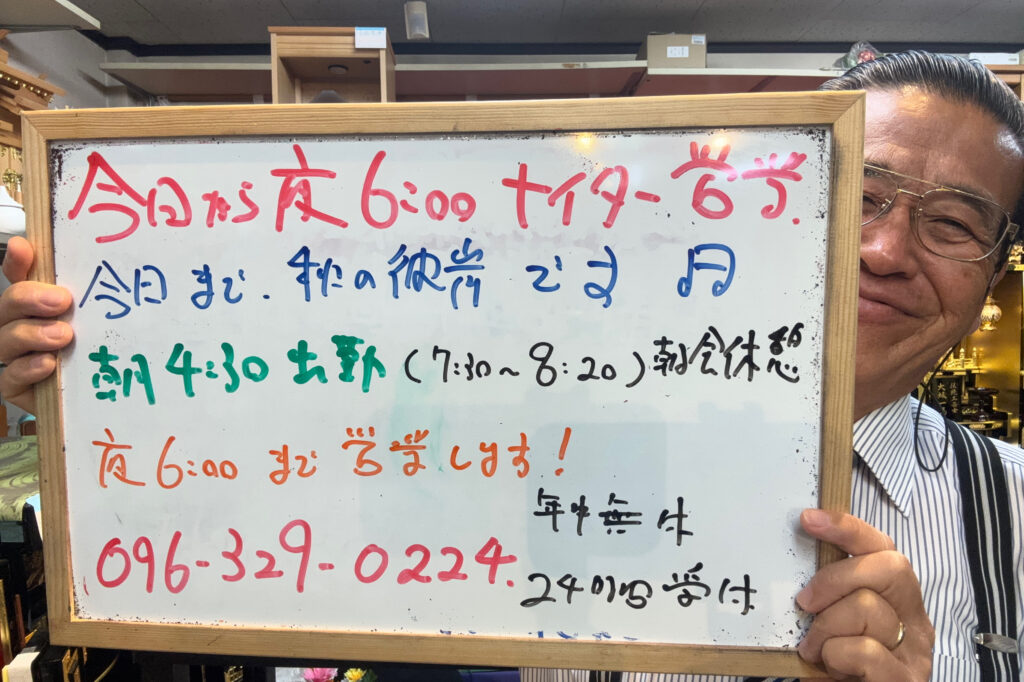 今日から夜6:00ナイター営業.
今日まで.秋の彼岸です 月
朝4:30出勤(7:30~8:20)朝会休憩
夜6:00まで営業します!
年中無休
096-329-0224.
24時間受付